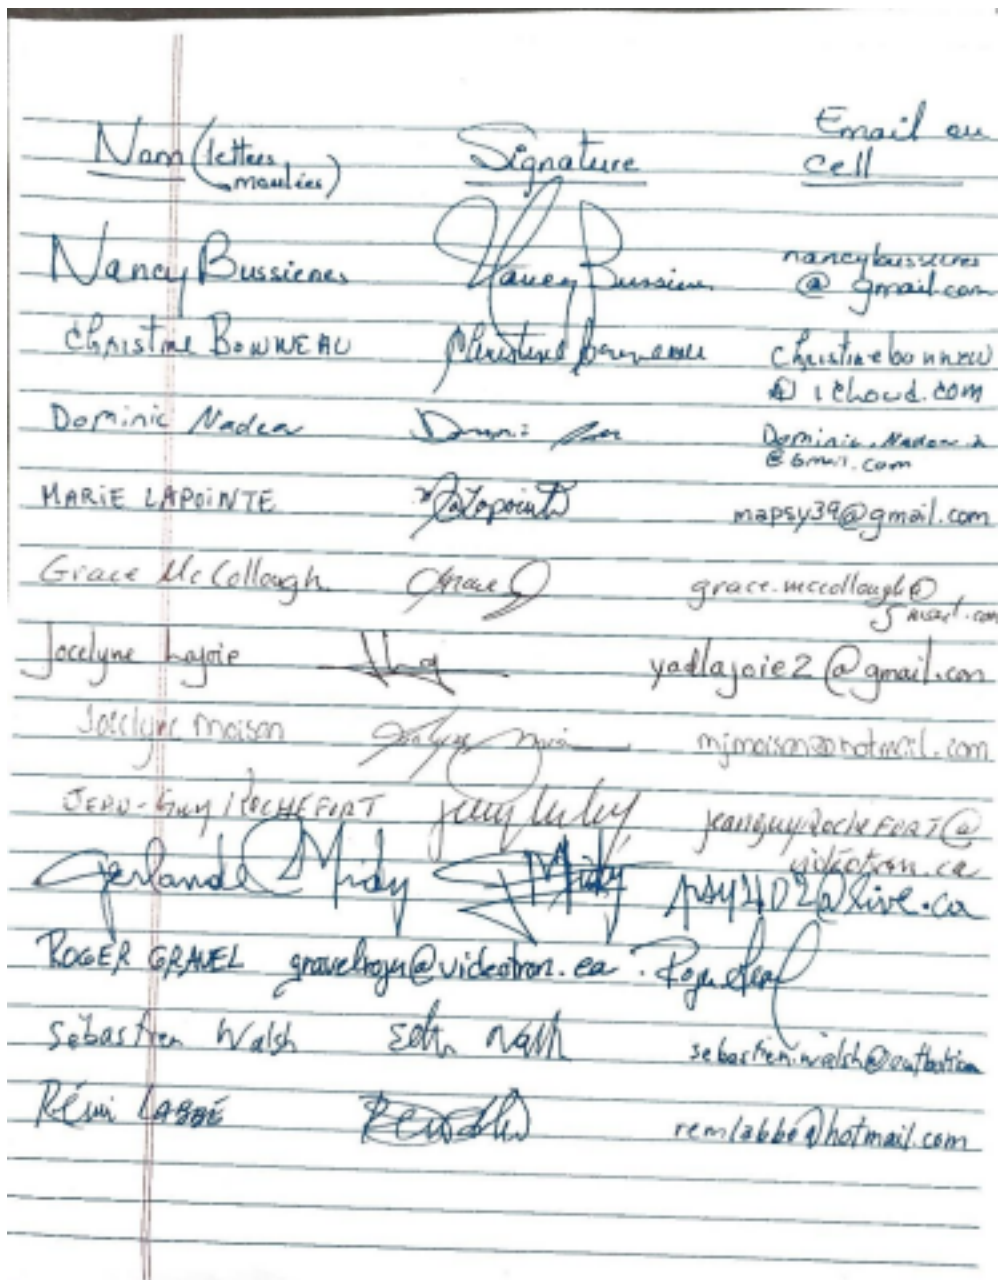 Nom (lettres moulées) Signature Email ou cell
Nancy Bussières Nancy Bussières nancybussieres @ gmail.com
Christine BONNEAU Christine Bonneau @ icloud.com
Dominic Nadeau @ Gmail.com
MARIE LAPOINTE Lapointe mapsy39@gmail.com
Grace McCollough Grace grace.mccollough@ gmail.com
Jocelyne Lajoie yadlajoie2@gmail.com
Jocelyne Moison mjmoison@hotmail.com
JEAN-Guy ROCHEFORT jeanguyrocheFORT@ videotron.ca
Gerlande Midy Midy psy402@live.ca
ROGER GRAVEL @videotron.ca
Sébastien Walsh sebastien.walsh@
Rémi LABBÉ remlabbe@hotmail.com